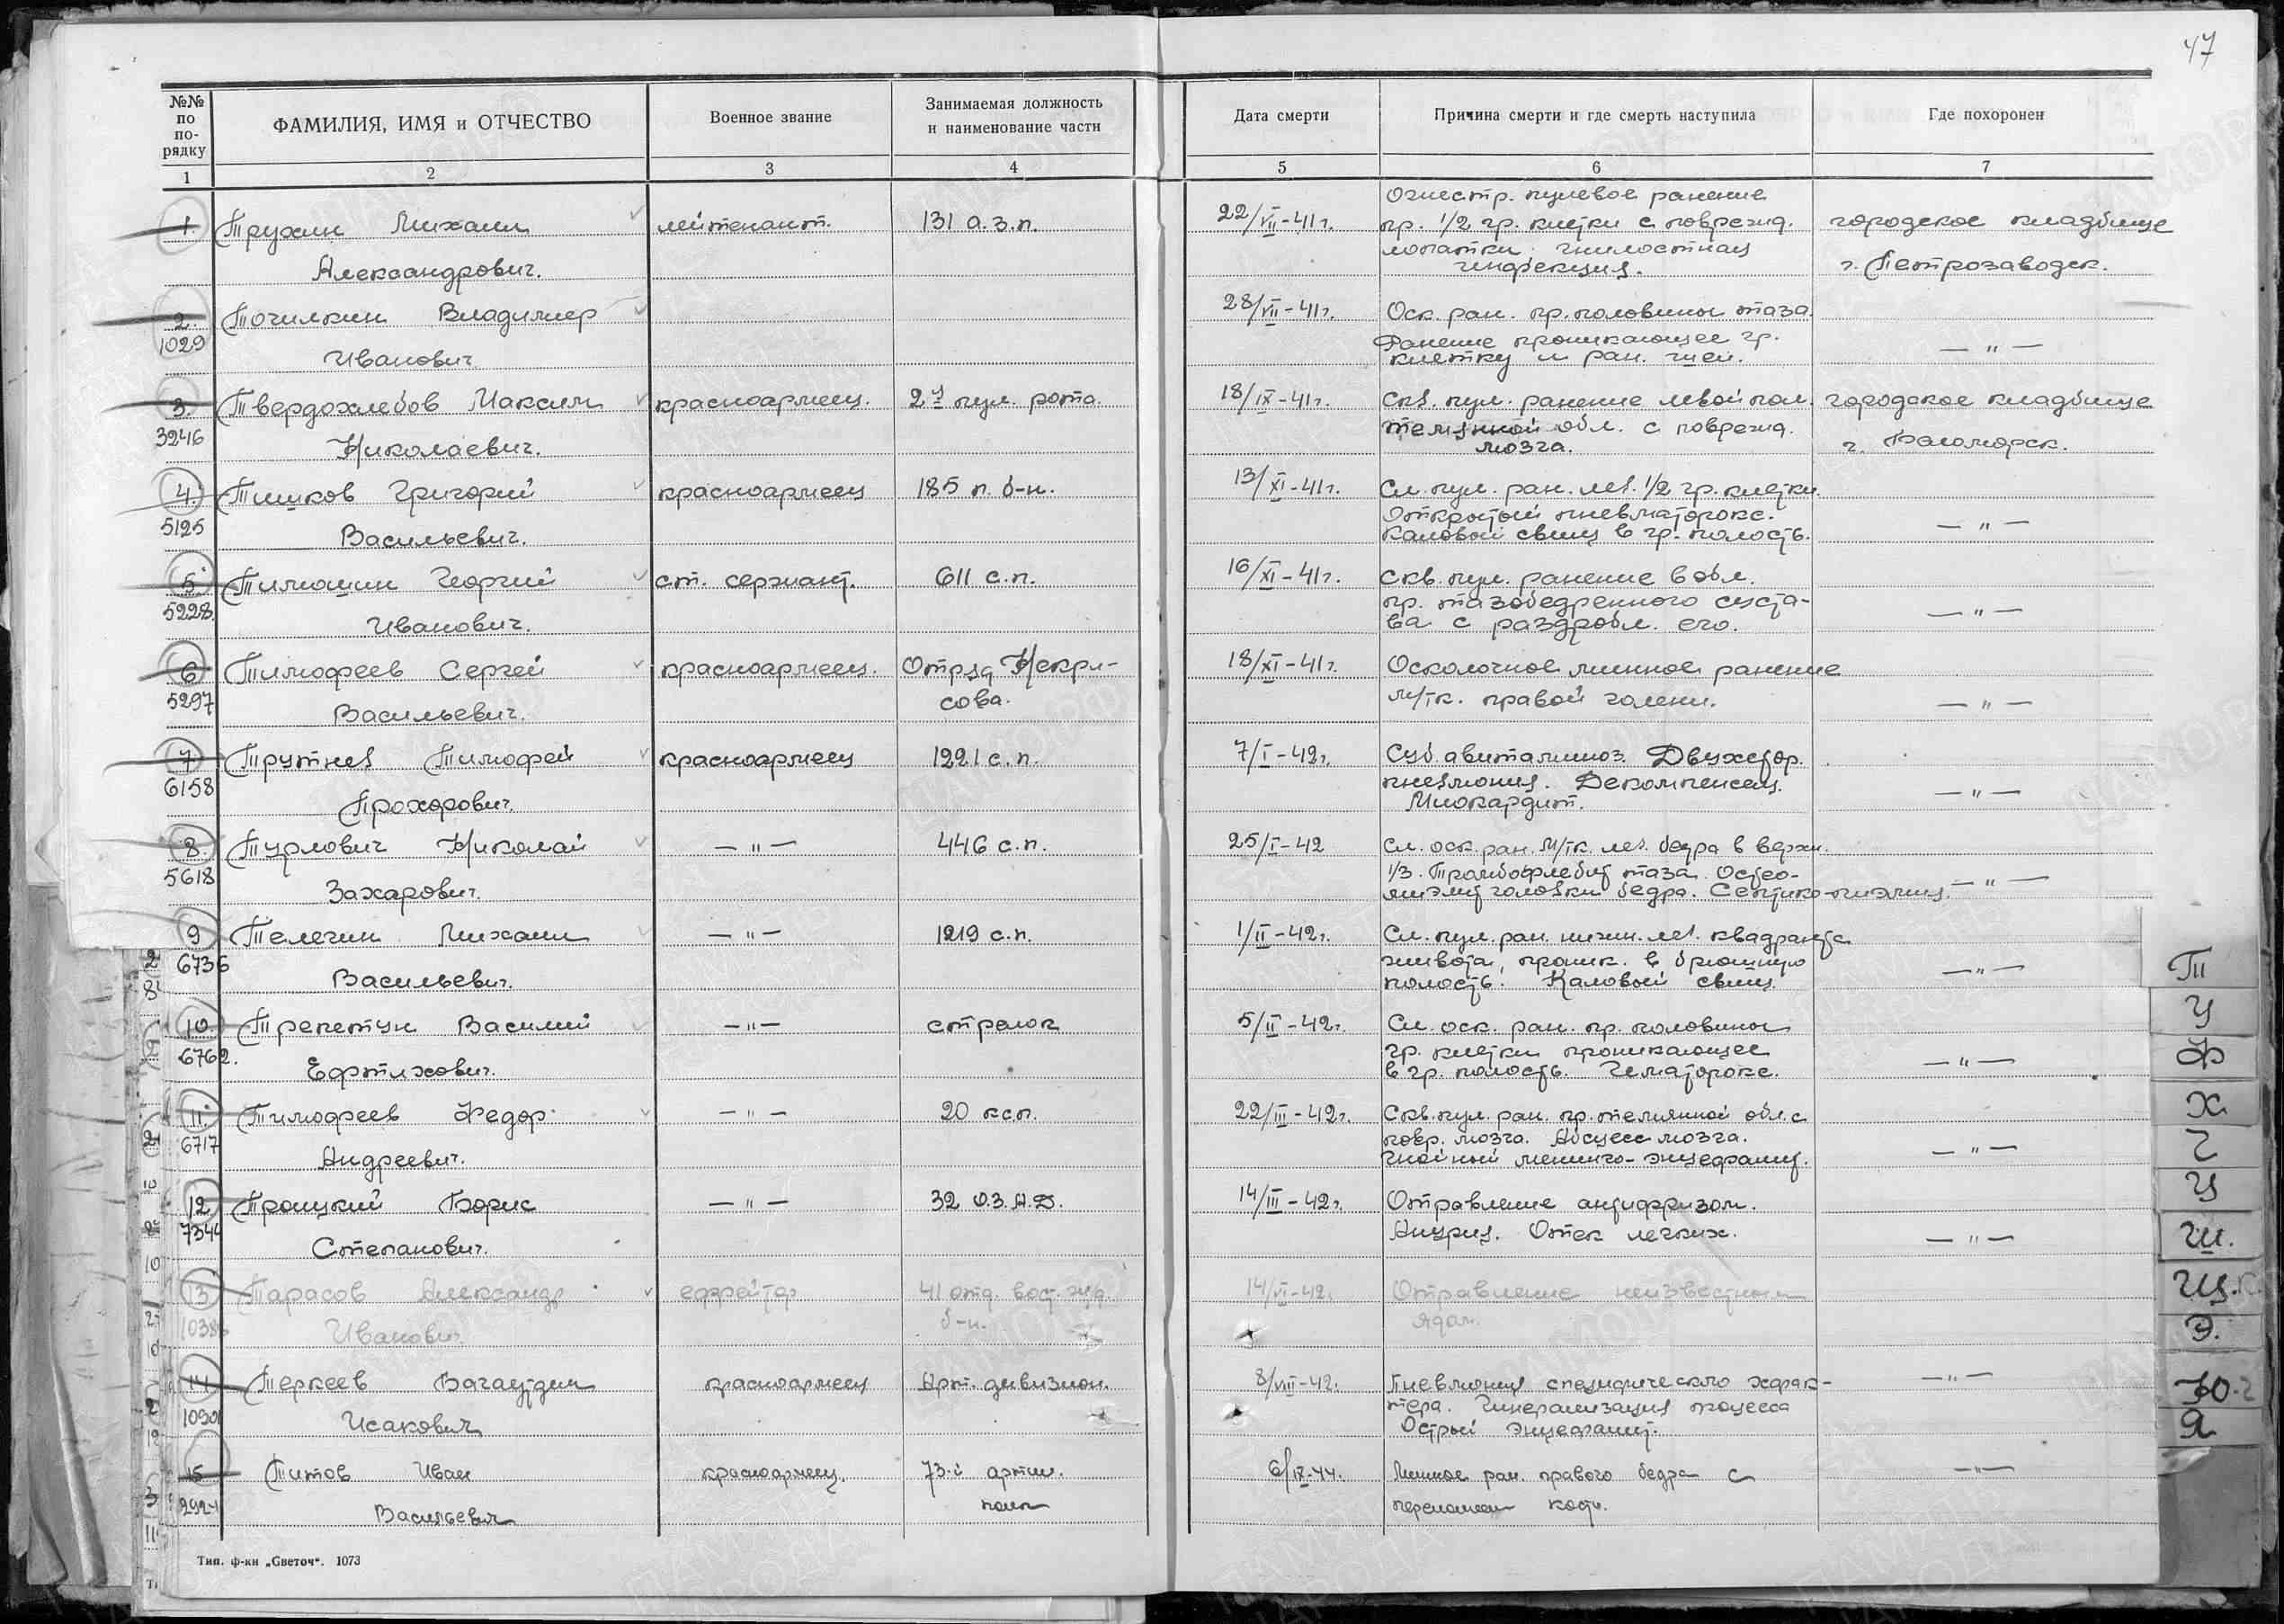 47
№№ по по-рядку
ФАМИЛИЯ, ИМЯ и ОТЧЕСТВО
Военное звание
Занимаемая должность и наименование части
Дата смерти
Причина смерти и где смерть наступила
Где похоронен
1 2 3 4 5 6 7
Огнестр. пулевое ранение
1. Трухин Михаил лейтенант. 131 а.з.п. 22/VII-41г. пр. 1/2 гр. клетки с поврежд. городское кладбище
лопатки. гнилостная
Александрович. инфекция. г. Петрозаводск.
2. Точилкин Владимир 28/VII-41г. Оск. ран. пр. половины таза.
1029 Ранение проникающее гр.
Иванович. клетку и ран. шеи. — " —
3. Твердохлебов Максим красноармеец. 2я пул. рота. 18/IX-41г. Скв. пул. ранение левой пол. городское кладбище
3246 обл. с поврежд.
Николаевич. мозга. г. Беломорск.
4. Тишков Григорий красноармеец 185 п. б-н. 13/XI-41г. Сл. пул. ран. лев. 1/2 гр. клетки.
5125 Открытый пневматоракс.
Васильевич. Каловый свищ в гр. полость. — " —
5. Тимошин Георгий ст. сержант. 611 с.п. 16/XI-41г. Скв. пул. ранение в обл.
5228. пр. тазобедренного суста-
Иванович. ва с раздробл. его. — " —
6 Тимофеев Сергей красноармеец. Отряд Некра- 18/XI-41г. Осколочное минное ранение
5297 Васильевич. сова. м/тк. правой голени. — " —
7 Трутнев Тимофей красноармеец 1221 с.п. 7/I-42г. Суб. авитаминоз. Двухстор.
6158 пневмония. Декомпенсац.
Прохорович. Миокардит. — " —
8. Турлович Николай — " — 446 с.п. 25/I-42 Сл. оск. ран. м/тк. лев. бедра в верхн.
5618 1/3. Тромбофлебит таза. Остео-
Захарович. миэлит головки бедра. Септико-пиэмия. — " —
9 Телегин Михаил — " — 1219 с.п. 1/II-42г. Сл. пул. ран. нижн. лев. квадранта
6736 живота, проник. в брюшную
Васильевич. полость. Каловый свищ. — " —
10. Трепетун Василий — " — стрелок 5/II-42г. Сл. оск. ран. пр. половины
6762. гр. клетки проникающее
Ефтихович. в гр. полость. Гематоракс. — " —
11. Тимофеев Федор — " — 20 ксп. 22/III-42г. Скв. пул. ран. пр. темянной обл. с
6717 повр. мозга. Абсцесс мозга.
Андреевич. Гнойный менинго-энцефалит. — " —
12. Троицкий Борис — " — 32 О.З.А.Д. 14/III-42г. Отравление антифризом.
7344 Анурия. Отек легких.
Степанович. — " —
13 Тарасов Александр ефрейтор 41 отд. вост. жд. 14/VI-42. Отравление неизвестным
Иванович б-н. ядом.
14 Теркеев Багаутдин красноармеец Арт. дивизион. 8/VIII-42. Пневмония специфического харак- — " —
10901 тера. Генерализация процесса
Исакович Острый энцефалит.
15 Титов Иван красноармеец. 73-й артил. 6/IX-44. Минное ран. правого бедра с — " —
2924 полк кости.
Васильевич
Тип. ф-ки „Светоч". 1073
Т
У
Ф
Х
Ч
Ц
Ш.
Щ.
Э.
Ю.
Я